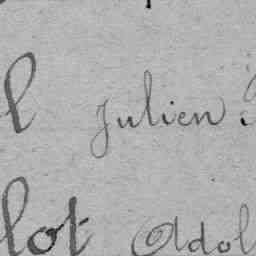 l Julien
lot Adol